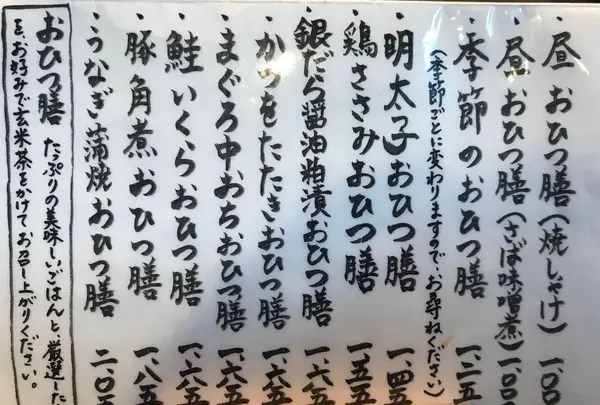 ・昼おひつ膳(焼しゃけ)一、〇〇
・昼おひつ膳(さば味噌煮)一、〇〇
・季節のおひつ膳 一、二五
(季節ごとに変わりますので、お尋ねください)
・明太子おひつ膳 一、四五
・鶏ささみおひつ膳 一、五五
・銀だら醤油粕漬おひつ膳 一、六五
・かつをたたきおひつ膳 一、六五
・まぐろ中おちおひつ膳 一、六五
・鮭いくらおひつ膳 一、六五
・豚角煮おひつ膳 一、八五
・うなぎ蒲焼おひつ膳 二、〇五
おひつ膳 たっぷりの美味しいごはんと、厳選した
を、お好みで玄米茶をかけてお召し上がりください。